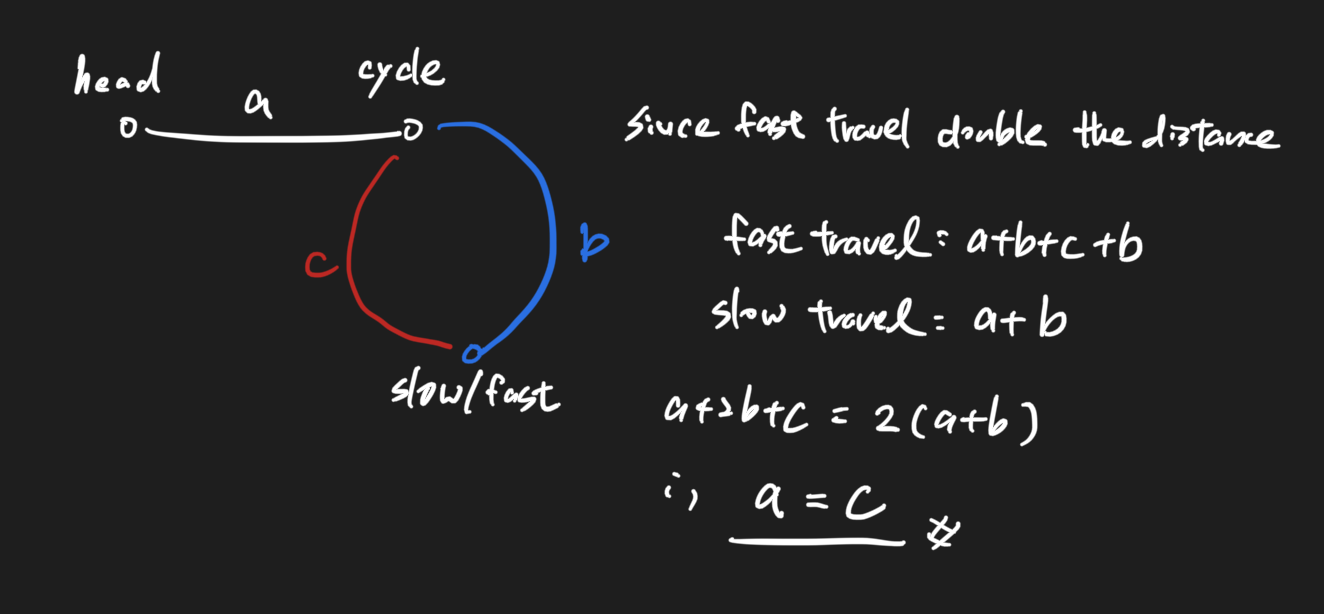 head
a
cycle
c
b
slow/fast
since fast travel double the distance
fast travel: a+b+c+b
slow travel: a+b
a+2b+c = 2(a+b)
a = c #